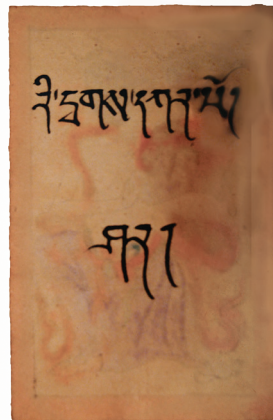 རི་དྭགས་དཀར་མོ།
ཤར།